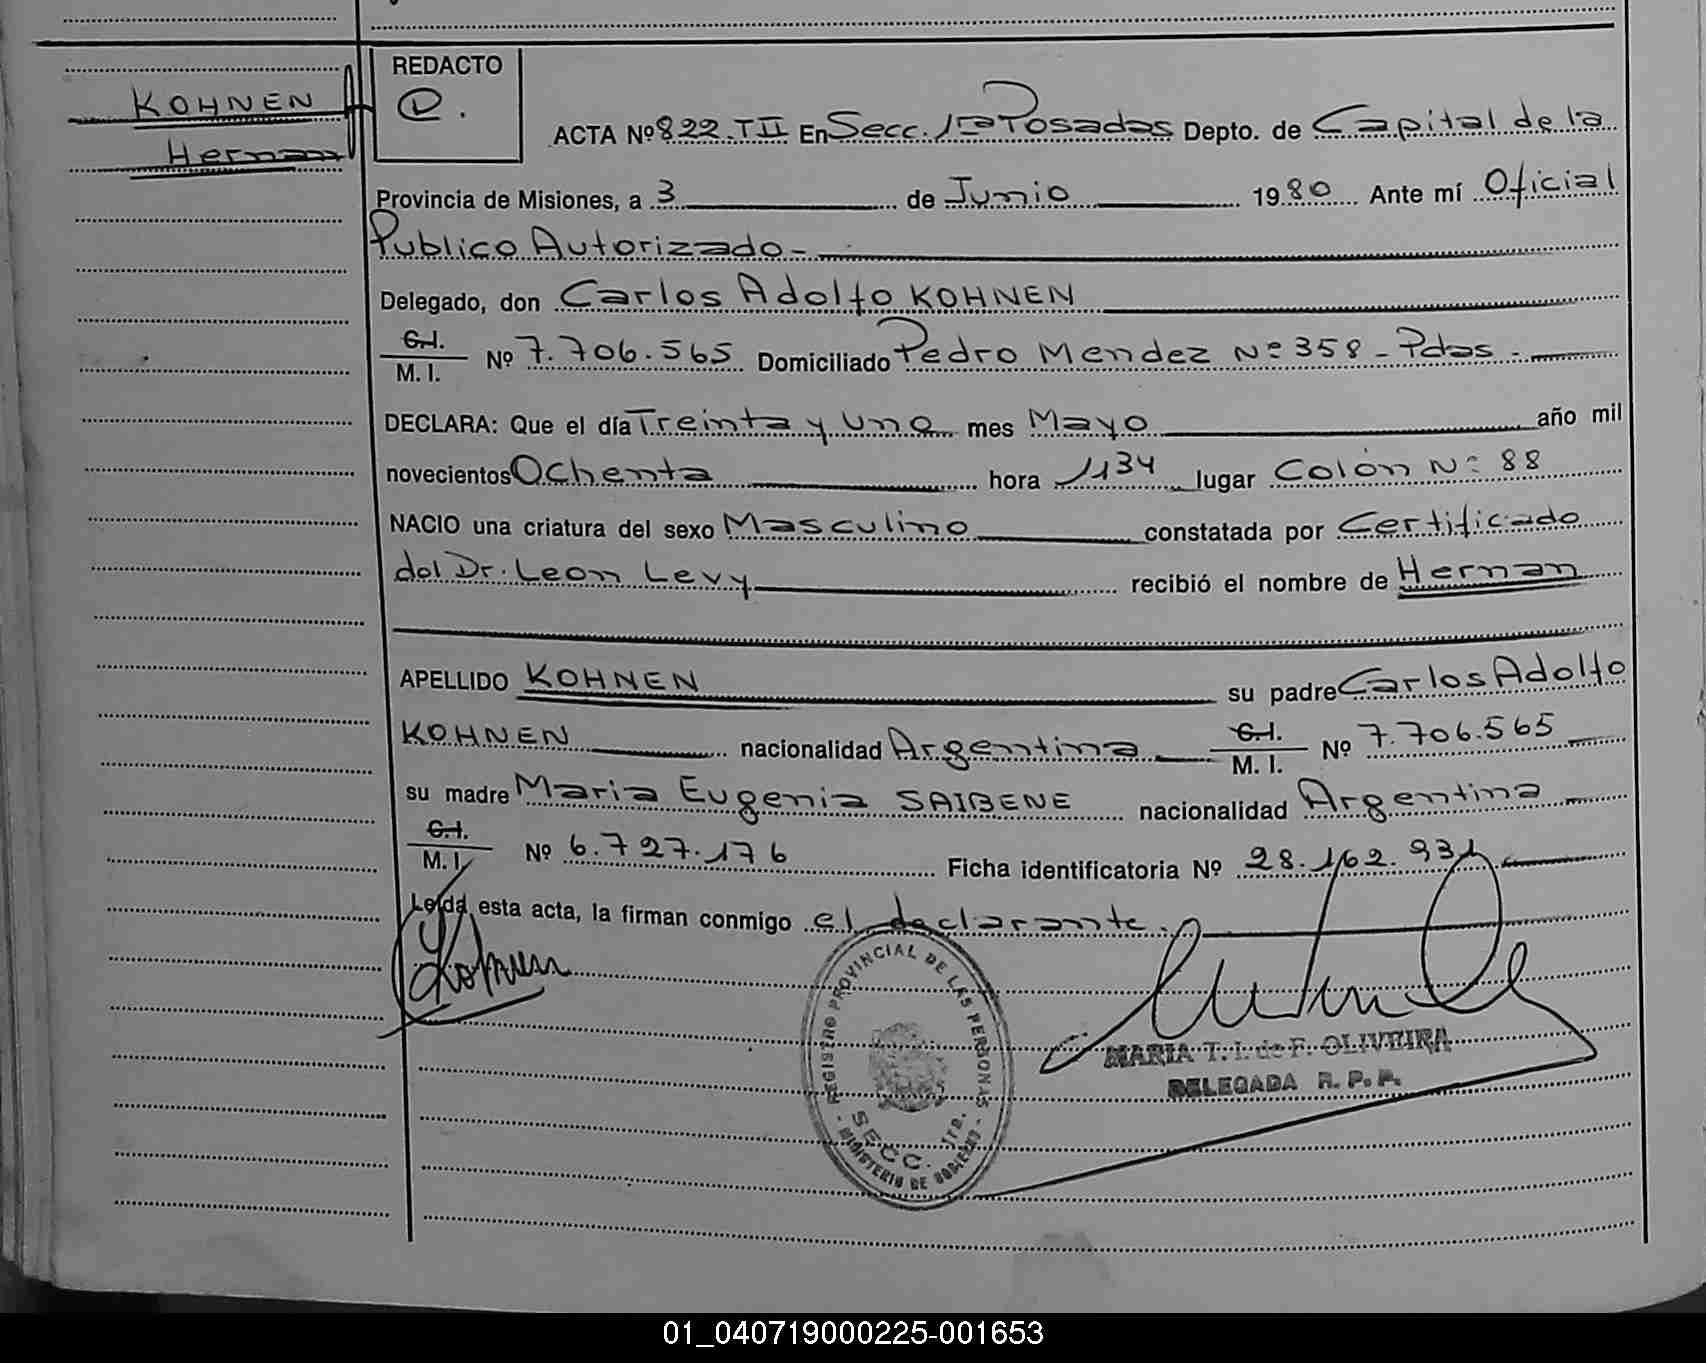 REDACTO
D.
KOHNEN
Hernan
ACTA Nº 822.TII En Secc. 1ra Posadas Depto. de Capital de la
Provincia de Misiones, a 3 de Junio 1980 Ante mí Oficial
Publico Autorizado -
Delegado, don Carlos Adolfo KOHNEN
C.I.
M. I. Nº 7.706.565 Domiciliado Pedro Mendez Nº 358 - Pdas -
DECLARA: Que el día Treinta y uno mes Mayo año mil
novecientos Ochenta hora 1134 lugar Colón Nº 88
NACIO una criatura del sexo Masculino constatada por Certificado
del Dr. Leon Levy recibió el nombre de Hernan
APELLIDO KOHNEN su padre Carlos Adolfo
KOHNEN nacionalidad Argentina C.I. M. I. Nº 7.706.565
su madre Maria Eugenia SAIBENE nacionalidad Argentina
C.I.
M. I. Nº 6.727.176 Ficha identificatoria Nº 28.162.931
Leída esta acta, la firman conmigo el declarante.
Kohnen
REGISTRO PROVINCIAL DE LAS PERSONAS
SECC. 1ra.
- MINISTERIO DE GOBIERNO -
MARIA T. I. de F. OLIVEIRA
DELEGADA R. P. P.
01_040719000225-001653